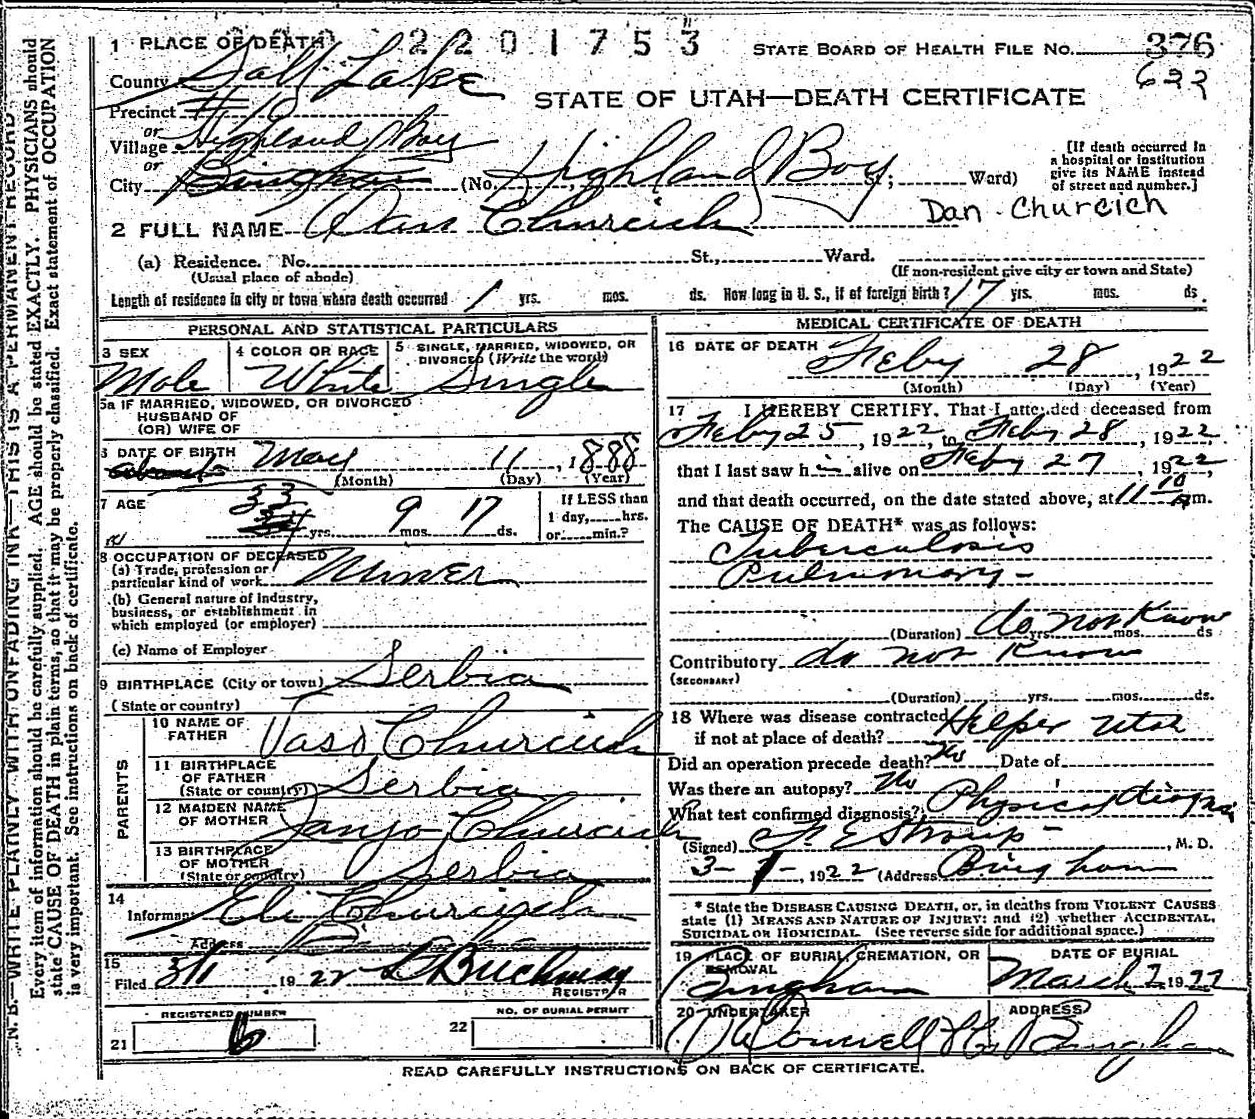 N. B.—WRITE PLAINLY WITH UNFADING INK—THIS IS A PERMANENT RECORD
Every item of information should be carefully supplied. AGE should be stated EXACTLY. PHYSICIANS should
state CAUSE OF DEATH in plain terms, so that it may be properly classified. Exact statement of OCCUPATION
is very important. See instructions on back of certificate.
1 PLACE OF DEATH 2201753 STATE BOARD OF HEALTH FILE NO. 376
County Salt Lake 622
STATE OF UTAH—DEATH CERTIFICATE
Precinct # 10
or
Village Highland Boy
or
City Bingham (No. Highland Boy St; Ward)
[If death occurred in
a hospital or institution
give its NAME instead
of street and number.]
Dan Churcich
2 FULL NAME Dan Churcich
(a) Residence. No. St., Ward.
(Usual place of abode) (If non-resident give city or town and State)
Length of residence in city or town where death occurred 1 yrs. mos. ds. How long in U. S., if of foreign birth? 17 yrs. mos. ds.
PERSONAL AND STATISTICAL PARTICULARS
3 SEX 4 COLOR OR RACE 5 SINGLE, MARRIED, WIDOWED, OR
DIVORCED (Write the word)
Male White Single
5a IF MARRIED, WIDOWED, OR DIVORCED
HUSBAND OF
(OR) WIFE OF
6 DATE OF BIRTH May 11, 1888
about (Month) (Day) (Year)
7 AGE 33
34 yrs. 9 mos. 17 ds. If LESS than
1 day, hrs.
or min.?
8 OCCUPATION OF DECEASED
(a) Trade, profession or
particular kind of work Miner
(b) General nature of industry,
business, or establishment in
which employed (or employer)
(c) Name of Employer
9 BIRTHPLACE (City or town) Serbia
(State or country)
PARENTS
10 NAME OF
FATHER Vaso Churcich
11 BIRTHPLACE
OF FATHER
(State or country) Serbia
12 MAIDEN NAME
OF MOTHER Janjo Churcich
13 BIRTHPLACE
OF MOTHER
(State or country) Serbia
14
Informant Eli Churcich
Address
15
Filed 3/1 1922
REGISTRAR
REGISTERED NUMBER NO. OF BURIAL PERMIT
21 6 22
MEDICAL CERTIFICATE OF DEATH
16 DATE OF DEATH Feby 28, 1922
(Month) (Day) (Year)
17 I HEREBY CERTIFY, That I attended deceased from
Feby 25, 1922, to Feby 28, 1922
that I last saw him alive on Feby 27, 1922,
and that death occurred, on the date stated above, at 11 10 m.
The CAUSE OF DEATH* was as follows:
Tuberculosis
Pulmonary-
(Duration) do not know yrs. mos. ds
Contributory do not know
(SECONDARY)
(Duration) yrs. mos. ds.
18 Where was disease contracted Helper Utah
if not at place of death?
Did an operation precede death? No Date of
Was there an autopsy? No
What test confirmed diagnosis? Physical
(Signed) F E Straup, M. D.
3-1-, 1922 (Address Bingham
* State the DISEASE CAUSING DEATH, or, in deaths from VIOLENT CAUSES
state (1) MEANS AND NATURE OF INJURY: and (2) whether ACCIDENTAL,
SUICIDAL OR HOMICIDAL. (See reverse side for additional space.)
19 PLACE OF BURIAL, CREMATION, OR
REMOVAL DATE OF BURIAL
Bingham March 2 1922
20 UNDERTAKER ADDRESS
O'Donnell & Co Bingham
READ CAREFULLY INSTRUCTIONS ON BACK OF CERTIFICATE.